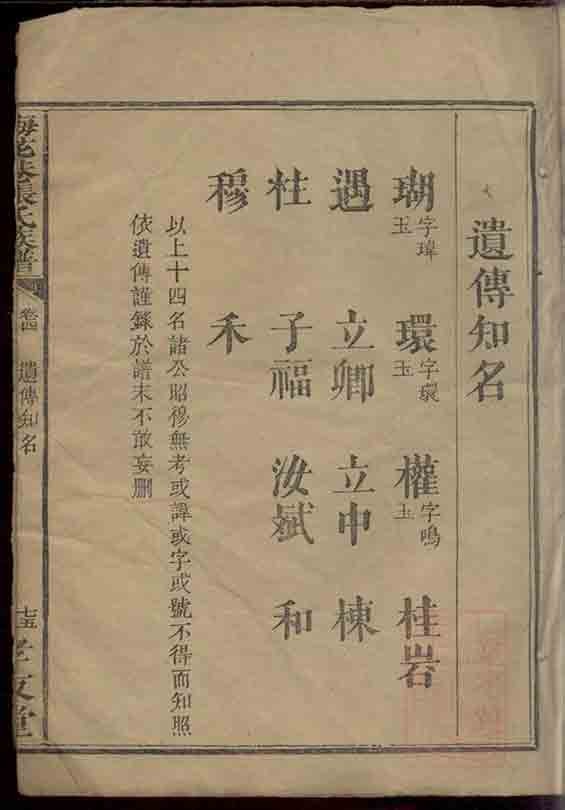 遺傳知名
瑚字瑋玉 環字環玉 權字鳴玉 桂岩
遇 立卿 立中 棟
柱 子福 汝斌 和
穆 禾
以上十四名諸公昭穆無考或諱或字或號不得而知照
依遺傳謹錄於譜末不敢妄刪
張氏族譜 卷四 遺傳知名 七五 孝友堂